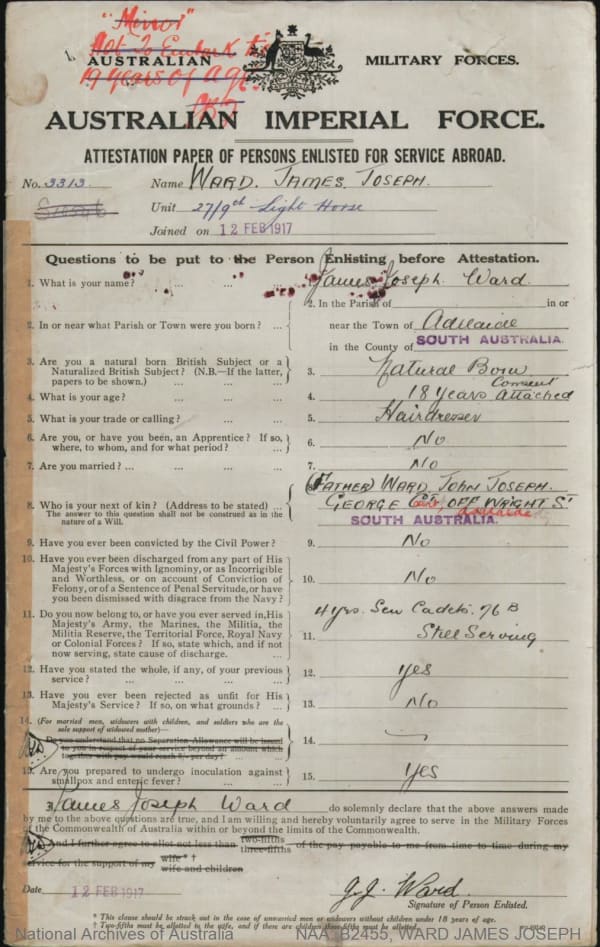 "Minor"
Not to Embark till
19 years of age.
1. AUSTRALIAN MILITARY FORCES.
AUSTRALIAN IMPERIAL FORCE.
ATTESTATION PAPER OF PERSONS ENLISTED FOR SERVICE ABROAD.
No. 3313. Name WARD. JAMES. JOSEPH.
Unit 27/9th Light Horse
Joined on 12 FEB 1917
Questions to be put to the Person Enlisting before Attestation.
1. What is your name? ... ... ... James Joseph Ward.
2. In or near what Parish or Town were you born? ... 2. In the Parish of in or
near the Town of Adelaide
in the County of SOUTH AUSTRALIA.
3. Are you a natural born British Subject or a
Naturalized British Subject? (N.B.—If the latter,
papers to be shown.) ... ... ... 3. Natural Born
4. What is your age? ... ... ... 4. 18 years Consent attached
5. What is your trade or calling? ... ... 5. Hairdresser
6. Are you, or have you been, an Apprentice? If so,
where, to whom, and for what period? ... ... 6. No
7. Are you married? ... ... ... ... 7. No
8. Who is your next of kin? (Address to be stated) ...
The answer to this question shall not be construed as in the
nature of a Will.
8. (FATHER) WARD, JOHN JOSEPH.
GEORGE CT, OFF WRIGHT ST
Adelaide
SOUTH AUSTRALIA.
9. Have you ever been convicted by the Civil Power? ... 9. No
10. Have you ever been discharged from any part of His
Majesty's Forces with Ignominy, or as Incorrigible
and Worthless, or on account of Conviction of
Felony, or of a Sentence of Penal Servitude, or have
you been dismissed with disgrace from the Navy? 10. No
11. Do you now belong to, or have you ever served in, His
Majesty's Army, the Marines, the Militia, the
Militia Reserve, the Territorial Force, Royal Navy
or Colonial Forces? If so, state which, and if not
now serving, state cause of discharge. ... 11. 4 yrs. Sen Cadets. 76 B
Still Serving
12. Have you stated the whole, if any, of your previous
service? ... ... ... ... 12. yes
13. Have you ever been rejected as unfit for His
Majesty's Service? If so, on what grounds? ... 13. No
14. (For married men, widowers with children, and soldiers who are the
sole support of widowed mother)—
Do you understand that no Separation Allowance will be issued
to you in respect of your service beyond an amount which
together with pay would reach 8/- per day? ... 14.
15. Are you prepared to undergo inoculation against
smallpox and enteric fever? ... ... 15. Yes
I, James Joseph Ward do solemnly declare that the above answers made
by me to the above questions are true, and I am willing and hereby voluntarily agree to serve in the Military Forces
of the Commonwealth of Australia within or beyond the limits of the Commonwealth.
And I further agree to allot not less than two-fifths three-fifths of the pay payable to me from time to time during my
service for the support of my wife * †
wife and children
Date 12 FEB 1917 J. J. Ward.
Signature of Person Enlisted.
* This clause should be struck out in the case of unmarried men or widowers without children under 18 years of age.
† Two-fifths must be allotted to the wife, and if there are children three-fifths must be allotted.
National Archives of Australia NAA: B2455, WARD JAMES JOSEPH